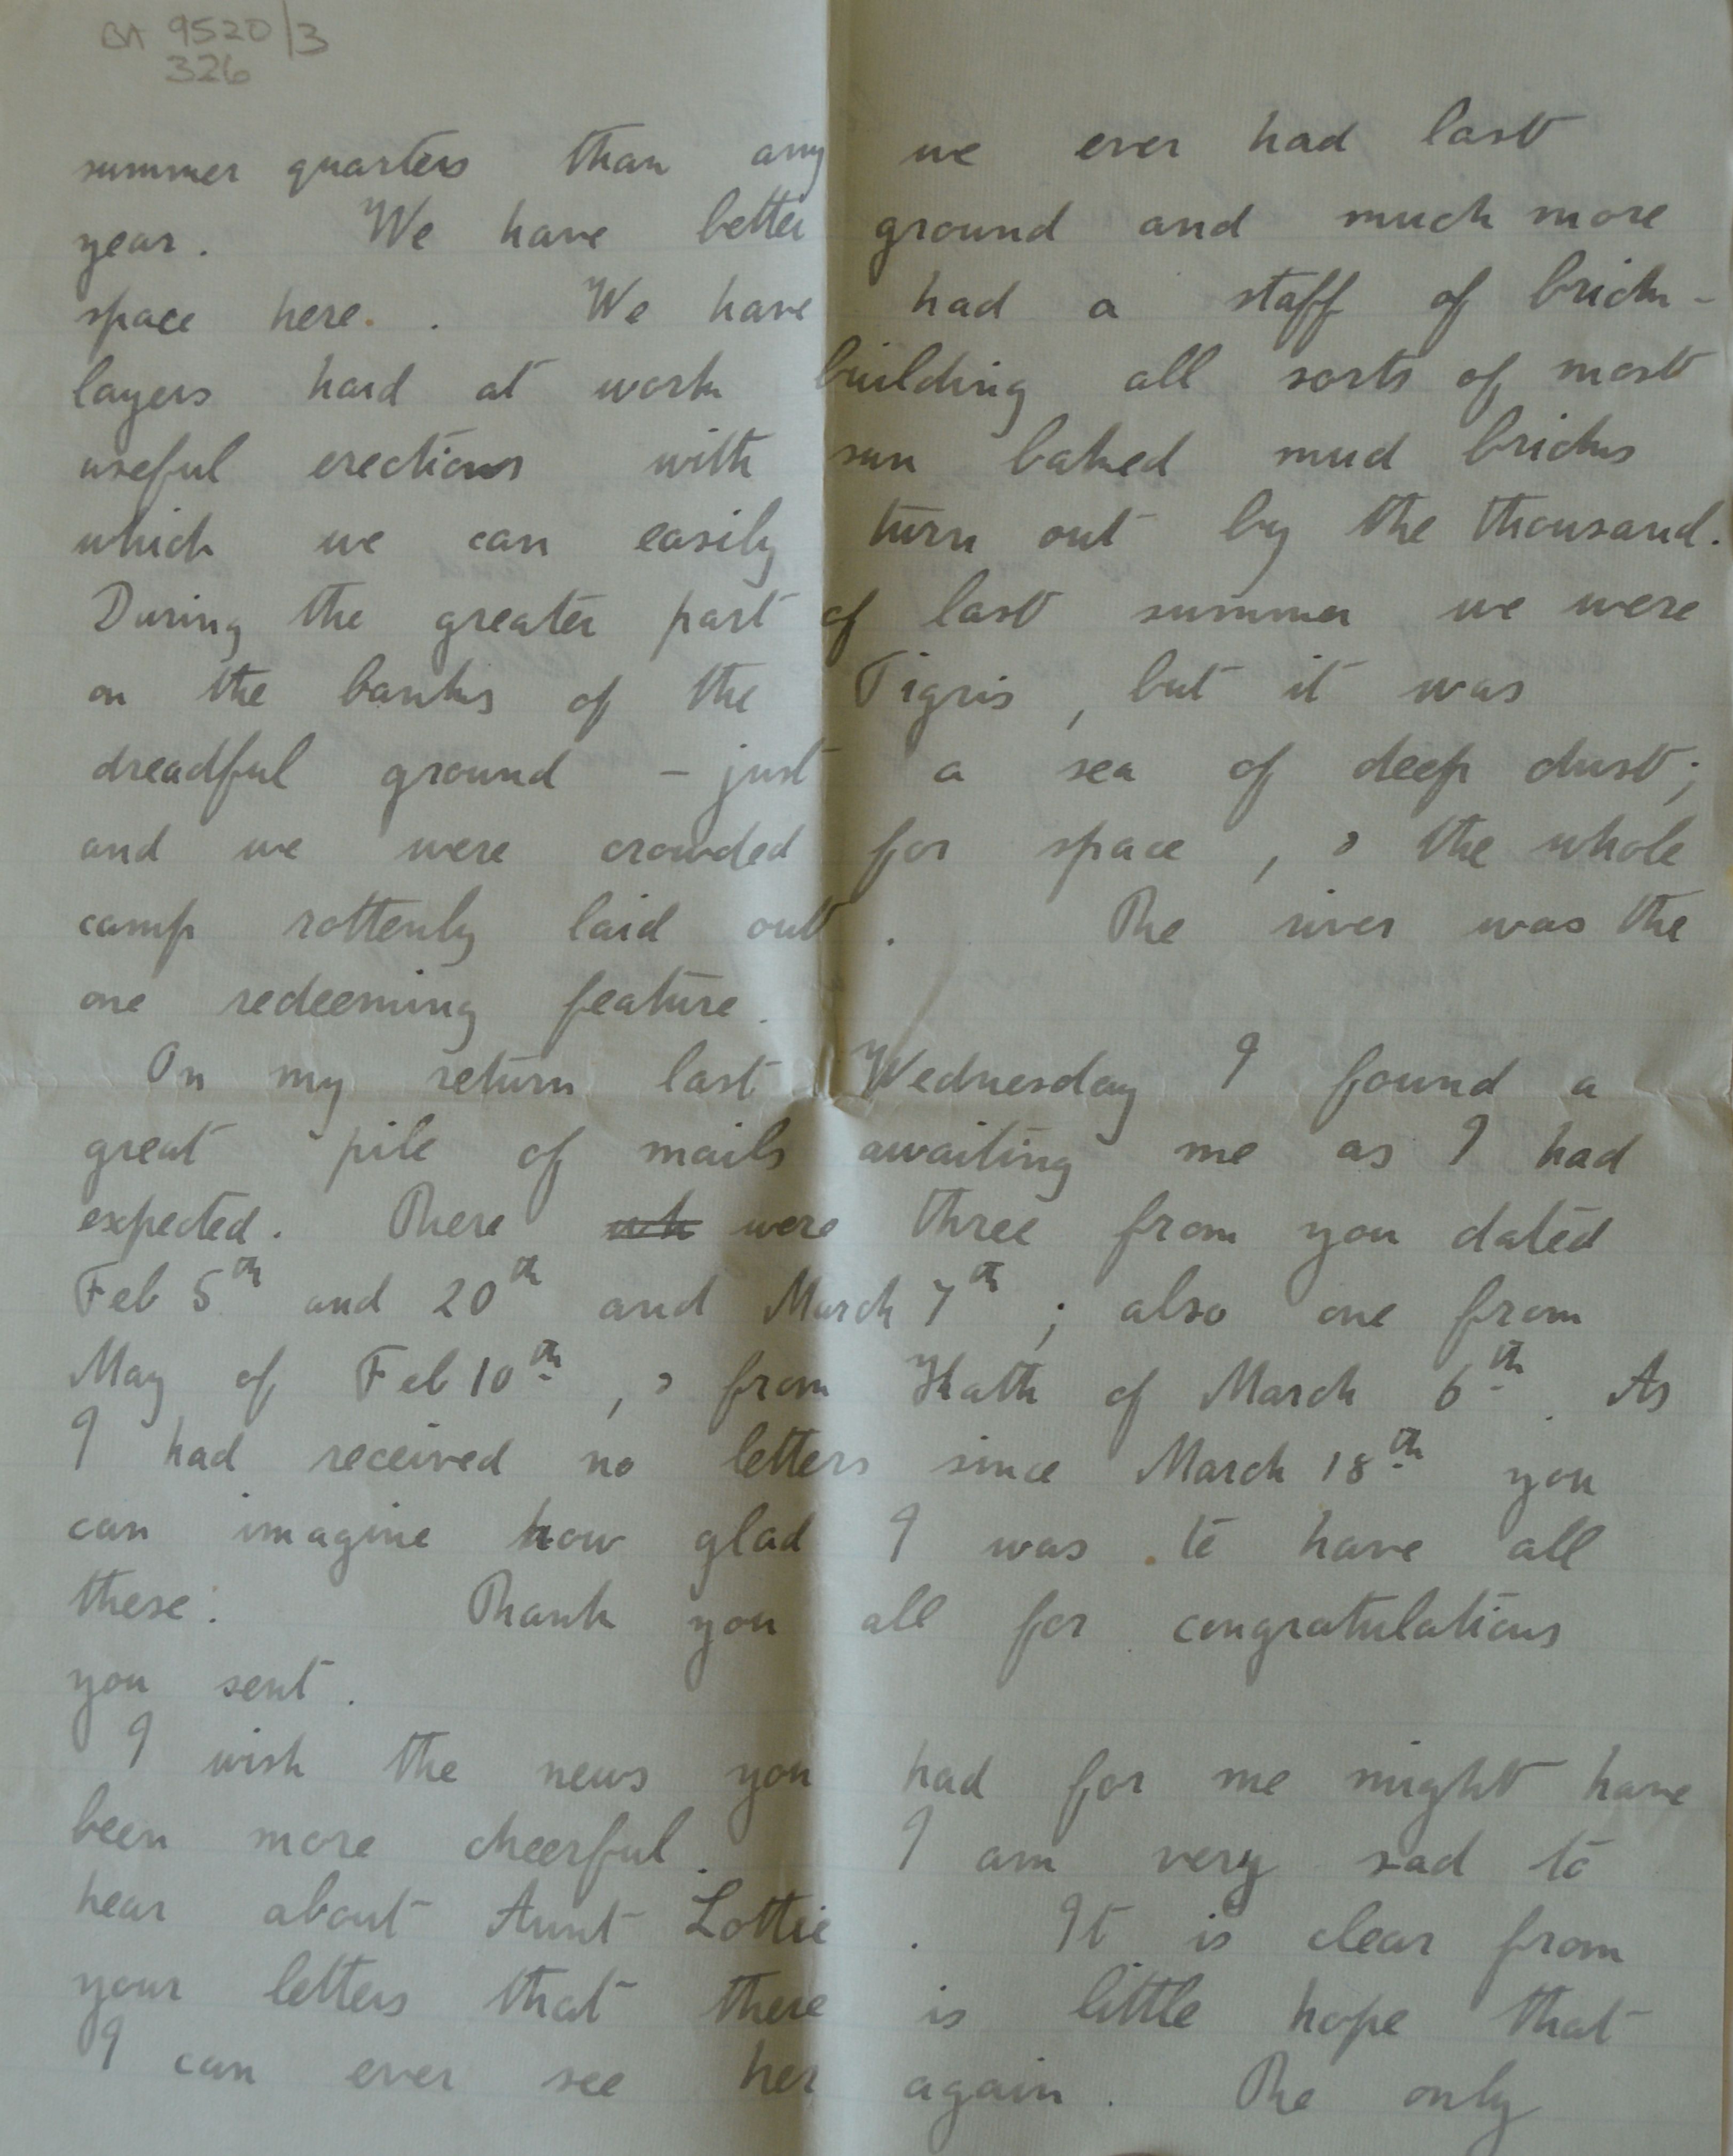 BA 9520/3
326
summer quarters than any we ever had last
year. We have better ground and much more
space here. We have had a staff of brick-
layers hard at work building all sorts of most
useful erections with sun baked mud bricks
which we can easily turn out by the thousand.
During the greater part of last summer we were
on the banks of the Tigris, but it was
dreadful ground - just a sea of deep dust;
and we were crowded for space, & the whole
camp rottenly laid out. The river was the
one redeeming feature.
On my return last Wednesday I found a
great pile of mails awaiting me as I had
expected. There wh were three from you dated
Feb 5th and 20th and March 7th; also one from
May of Feb 10th, & from Kath of March 6th. As
I had received no letters since March 18th you
can imagine how glad I was to have all
these. Thank you all for congratulations
you sent.
I wish the news you had for me might have
been more cheerful. I am very sad to
hear about Aunt Lottie. It is clear from
your letters that there is little hope that
I can ever see her again. The only